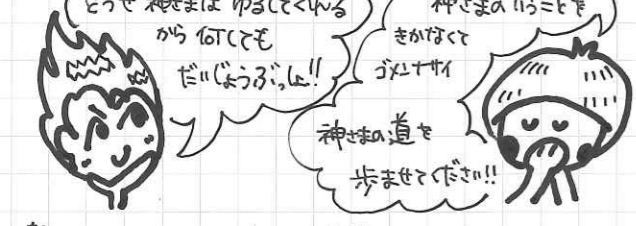 どうせ 神さまは ゆるしてくれる
から 何しても
だいじょうぶっしょ!!
神さまのいうことを
きかなくて
ゴメンナサイ
神さまの道を
歩ませてください!!